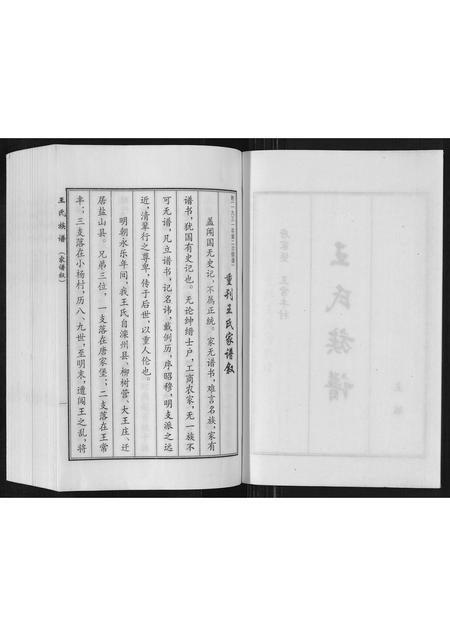 重刊王氏家谱叙
盖闻国无史记，不属正统。家无谱书，难言名族，家有
谱书，犹国有史记也。无论绅缙士户，工商农家，无一族不
可无谱，凡立谱书，记名讳，戴例历，序昭穆，明支派之远
近，清辈行之尊卑，传于后世，以重人伦也。
明朝永乐年间，我王氏自滦州县、柳树营、大王庄、迁
居盐山县。兄弟三位，一支落在唐家堡；二支落在王常
丰；三支落在小杨村，历八、九世，至明末，遭闯王之乱，将
王氏族谱（家谱叙）
一
王氏族谱